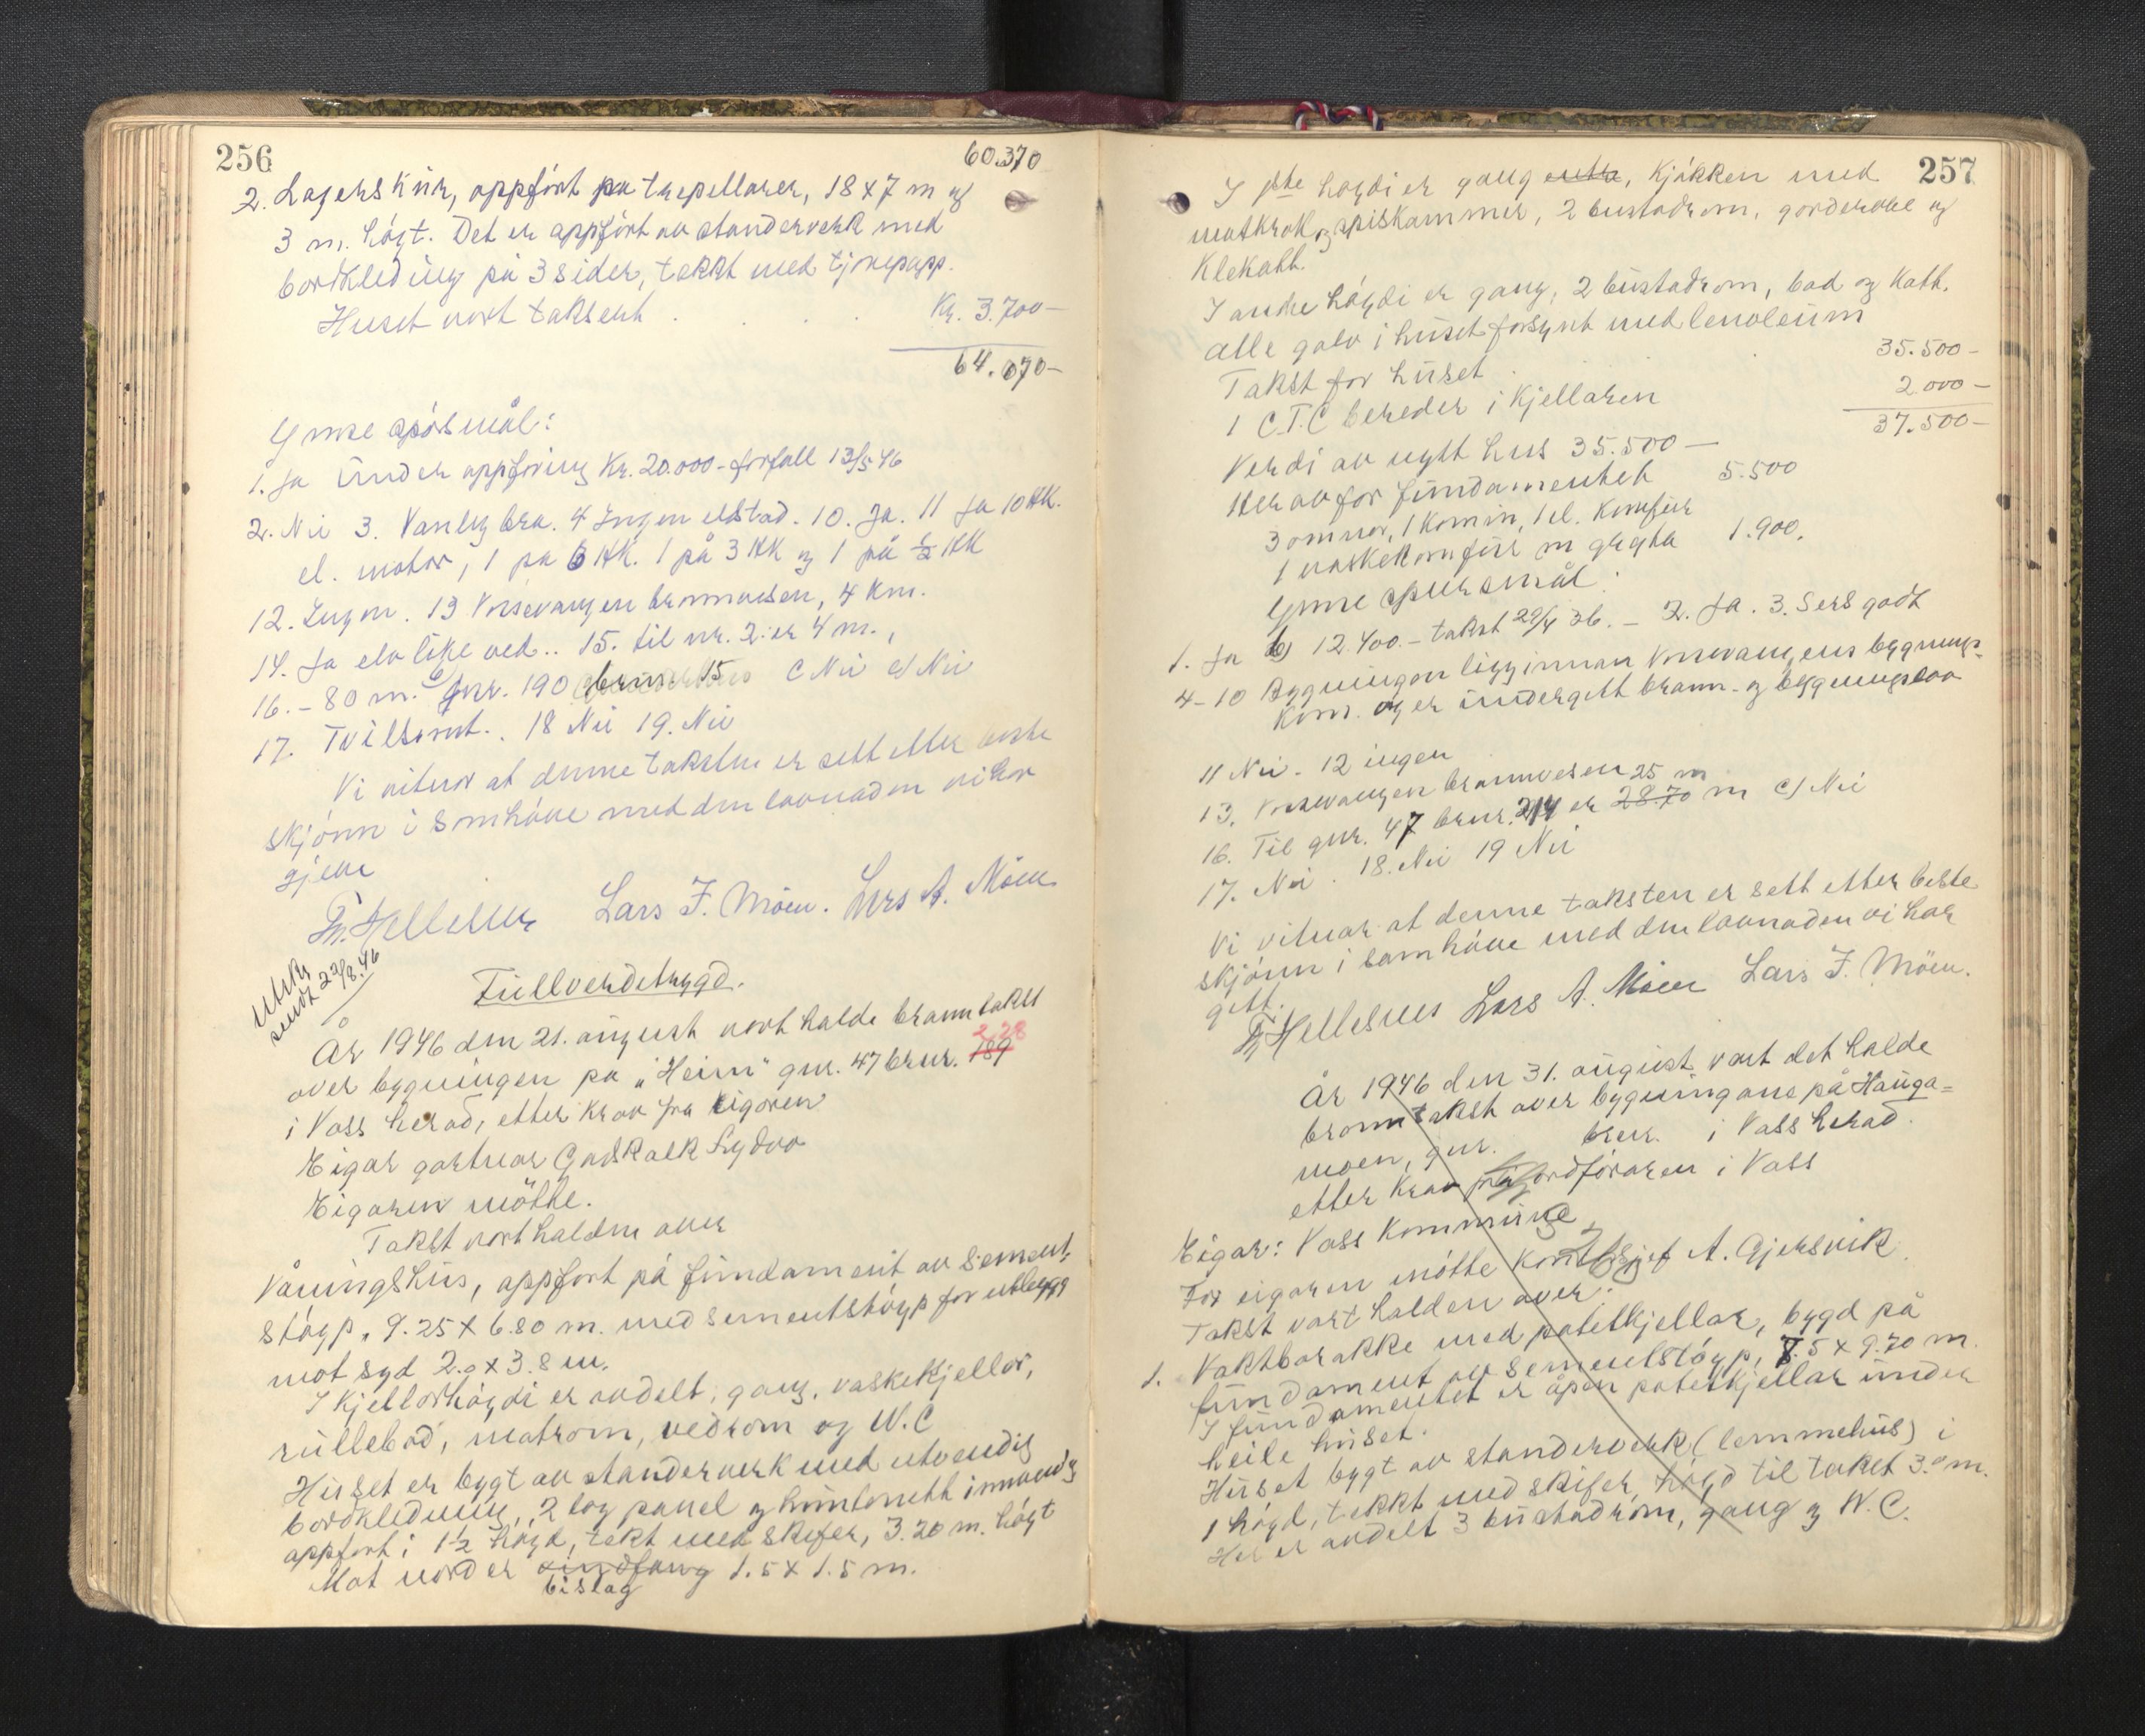 256
60.370
2. Lagerskur, oppført på trepellarer, 18 x 7 m og
3 m. høgt. Det er oppført av standerverk med
bordkleding på 3 sider, tekkt med tjørepapp.
Huset vart taksert . . . . Kr. 3.700-
64.070-
Ymse spørsmål:
1. Ja under oppføring Kr. 20.000- forfall 13/5 46
2. Nei 3. Vanleg bra. 4 Ingen eldstad. 10. Ja. 11 Ja 10 HK.
el. motor, 1 på 6 HK. 1 på 3 HK og 1 på ½ HK
12. Ingen. 13 Vossevangen brannvesen, 4 km.
14. Ja elv like ved.. 15. til nr. 2. er 4 m.,
16. - 80 m. b gnr. 190 brnr 15 C Nei e) Nei
17. Tvilsomt.. 18 Nei 19. Nei
Vi vitnar at denne taksten er sett etter beste
skjønn i samhøve med den lovnaden vi har
gjeve
Lars J. Möen. Lars A. Möen
Utskr
sendt 22/8.46
Fullverdetrygd.
År 1946 den 21. august vart halde branntakst
228
over bygningen på "Heim" gnr. 47 brnr. 189
i Voss herad, etter krav fra eigaren
Eigar gartnar Godskalk Sydvo
Eigaren møtte.
Takst vart halden over
Våningshus, oppført på fundament av sement-
støyp, 9.25 x 6.80 m. med sementstøyp for utbygg
mot syd 2.0 x 3.8 m.
I kjellarhøgdi er avdelt, gang, vaskekjellar,
rullebod, matrom, vedrom og W.C
Huset er bygt av standerverk med utvendig
bordkledning, 2 lag panel og huntonett innvendig
oppført i 1½ høgd, tekt med skifer, 3.20 m. høgt
Mot nord er vindfang 1.5 x 1.5 m.
bislag
257
I 1ste høgdi er gang entre, kjøkken med
matkrok og spiskammer, 2 bustadrom, garderobe og
klekott.
I andre høgdi er gang, 2 bustadrom, bad og kott.
Alle golv i huset forsynt med linoleum
Takst for huset . 35.500-
1 C.T.C bereder i kjellaren 2.000-
37.500-
Verdi av nytt hus 35.500-
Herav for fundamentet 5.500
3 omnar, 1 kamin, 1 el. komfur
1 vaskekomfur m gryta 1.900.
Ymse spursmål:
1. Ja b) 12.400.- takst 29/4 36. - 2. Ja. 3. Sers godt
4-10 Bygningen ligg innan Vossevangens bygnings-
kom. og er undergitt brann- og bygningslov
11 Nei - 12 ingen
13. Vossevangen brannvesen 25 m
16. Til gnr. 47 brnr. 214 er 28.70 m c) Nei
17. Nei. 18. Nei 19 Nei
Vi vitnar at denne taksten er sett etter beste
skjønn i samhøve med den lovnaden vi har
gitt.
Lars A. Möen Lars J. Möen.
År 1946 den 31. august vart det halde
branntakst over bygningane på Hauga=
moen, gnr. brnr. i Voss herad.
etter krav frå ordføraren i Voss
Eigar: Voss Kommune
For eigaren møtte kontorsjef A. Gjersvik
Takst vart halden over:
1. Vaktbarakke med potetkjellar, bygd på
fundament av sementstøyp, 7.5 x 9.70 m.
I fundamentet er åpen potetkjellar under
heile huset.
Huset bygt av standerverk (lemmehus) i
1 høgd, tekkt med skifer, høgd til taket 3.0 m.
Her er avdelt 3 bustadrom, gang og W.C.